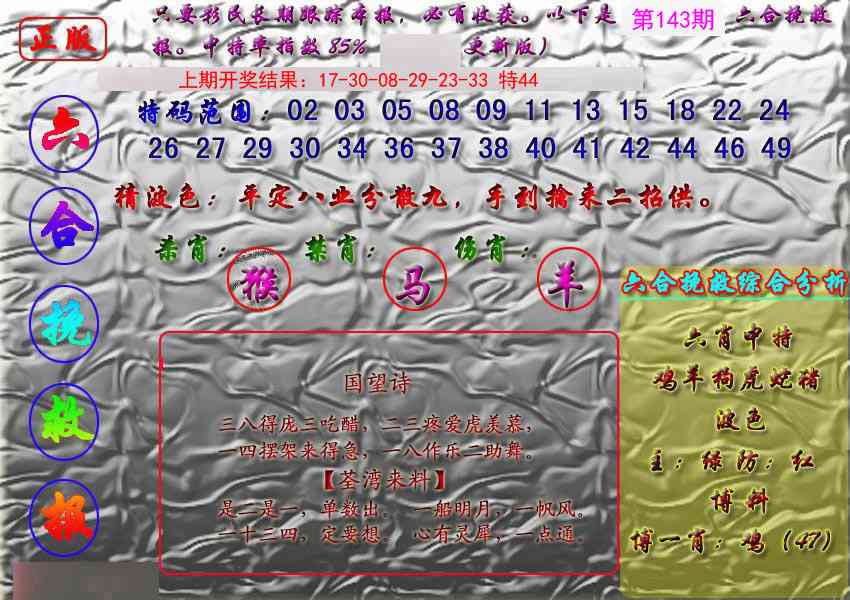 正版
只要彩民长期跟踪本报，必有收获。以下是 第143期 六合挽救
报。中特率指数85% 更新版）
上期开奖结果：17-30-08-29-23-33 特44
特码范围：02 03 05 08 09 11 13 15 18 22 24
26 27 29 30 34 36 37 38 40 41 42 44 46 49
猜波色：平定八业分散九，手到擒来二招供。
杀肖： 禁肖： 伤肖：
猴 马 羊
六
合
挽
救
报
国望诗
三八得庞三吃醋，二三疼爱虎羡慕，
一四摆架来得急，一八作乐二助舞。
【荃湾来料】
是二是一，单数出。 一船明月，一帆风。
一十三四，定要想。 心有灵犀，一点通。
六合挽救综合分析
六肖中特
鸡羊狗虎蛇猪
波色
主：绿防：红
博料
博一肖：鸡（47）